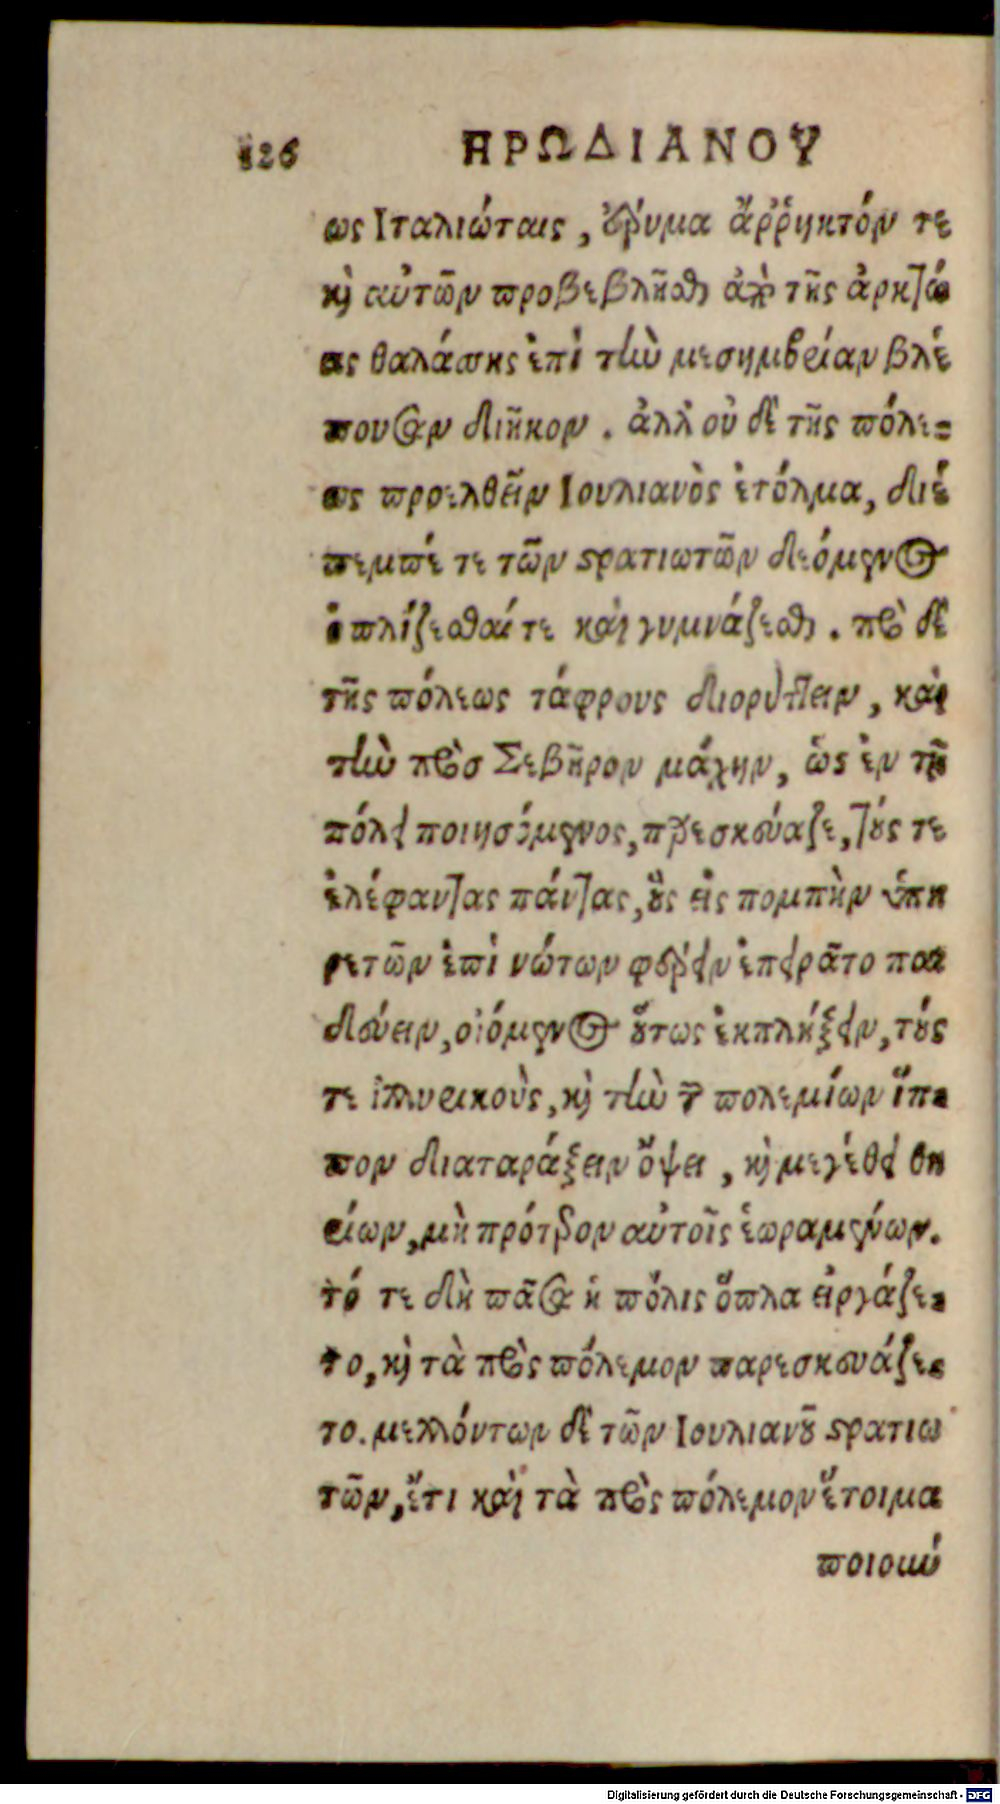 126 ΗΡΩΔΙΑΝΟΥ
ως Ιταλιώταις, ἔρυμα ἄῤῥηκτόν τε
καὶ αὐτῶν προβεβλῆσθαι ἀπὸ τῆς ἀρκτῴ
ας θαλάσσης ἐπὶ τὴν μεσημβρίαν βλέ
πουσαν διῆκον. ἀλλ' οὐ δὲ τῆς πόλε=
ως προελθεῖν Ιουλιανὸς ἐτόλμα, διέ
πεμπέ τε τῶν στρατιωτῶν δεόμενος
ὁπλίζεσθαί τε καὶ γυμνάζεσθαι. πρὸ δὲ
τῆς πόλεως τάφρους διορύττειν, καὶ
τὴν πρὸσ Σεβῆρον μάχην, ὡς ἐν τῇ
πόλει ποιησόμενος, παρεσκεύαζε, τούς τε
ἐλέφαντας πάντας, οὓς εἰς πομπὴν ὑπη
ρετῶν ἐπὶ νώτων φέρειν ἐπειρᾶτο παι
δεύειν, οἰόμενος οὕτως ἐκπλήξειν, τούς
τε ἰλλυρικοὺς, καὶ τὴν τῶν πολεμίων ἵπ=
πον διαταράξειν ὄψει, καὶ μεγέθει θη
ρίων, μὴ πρότερον αὐτοῖς ἑωραμένων.
τό τε δὴ πᾶσα ἡ πόλις ὅπλα εἰργάζε=
το, καὶ τὰ πρὸς πόλεμον παρεσκευάζε=
το. μελλόντων δὲ τῶν Ιουλιανοῦ στρατιω
τῶν, ἔτι καὶ τὰ πρὸς πόλεμον ἕτοιμα
ποιούν
Digitalisierung gefördert durch die Deutsche Forschungsgemeinschaft - DFG